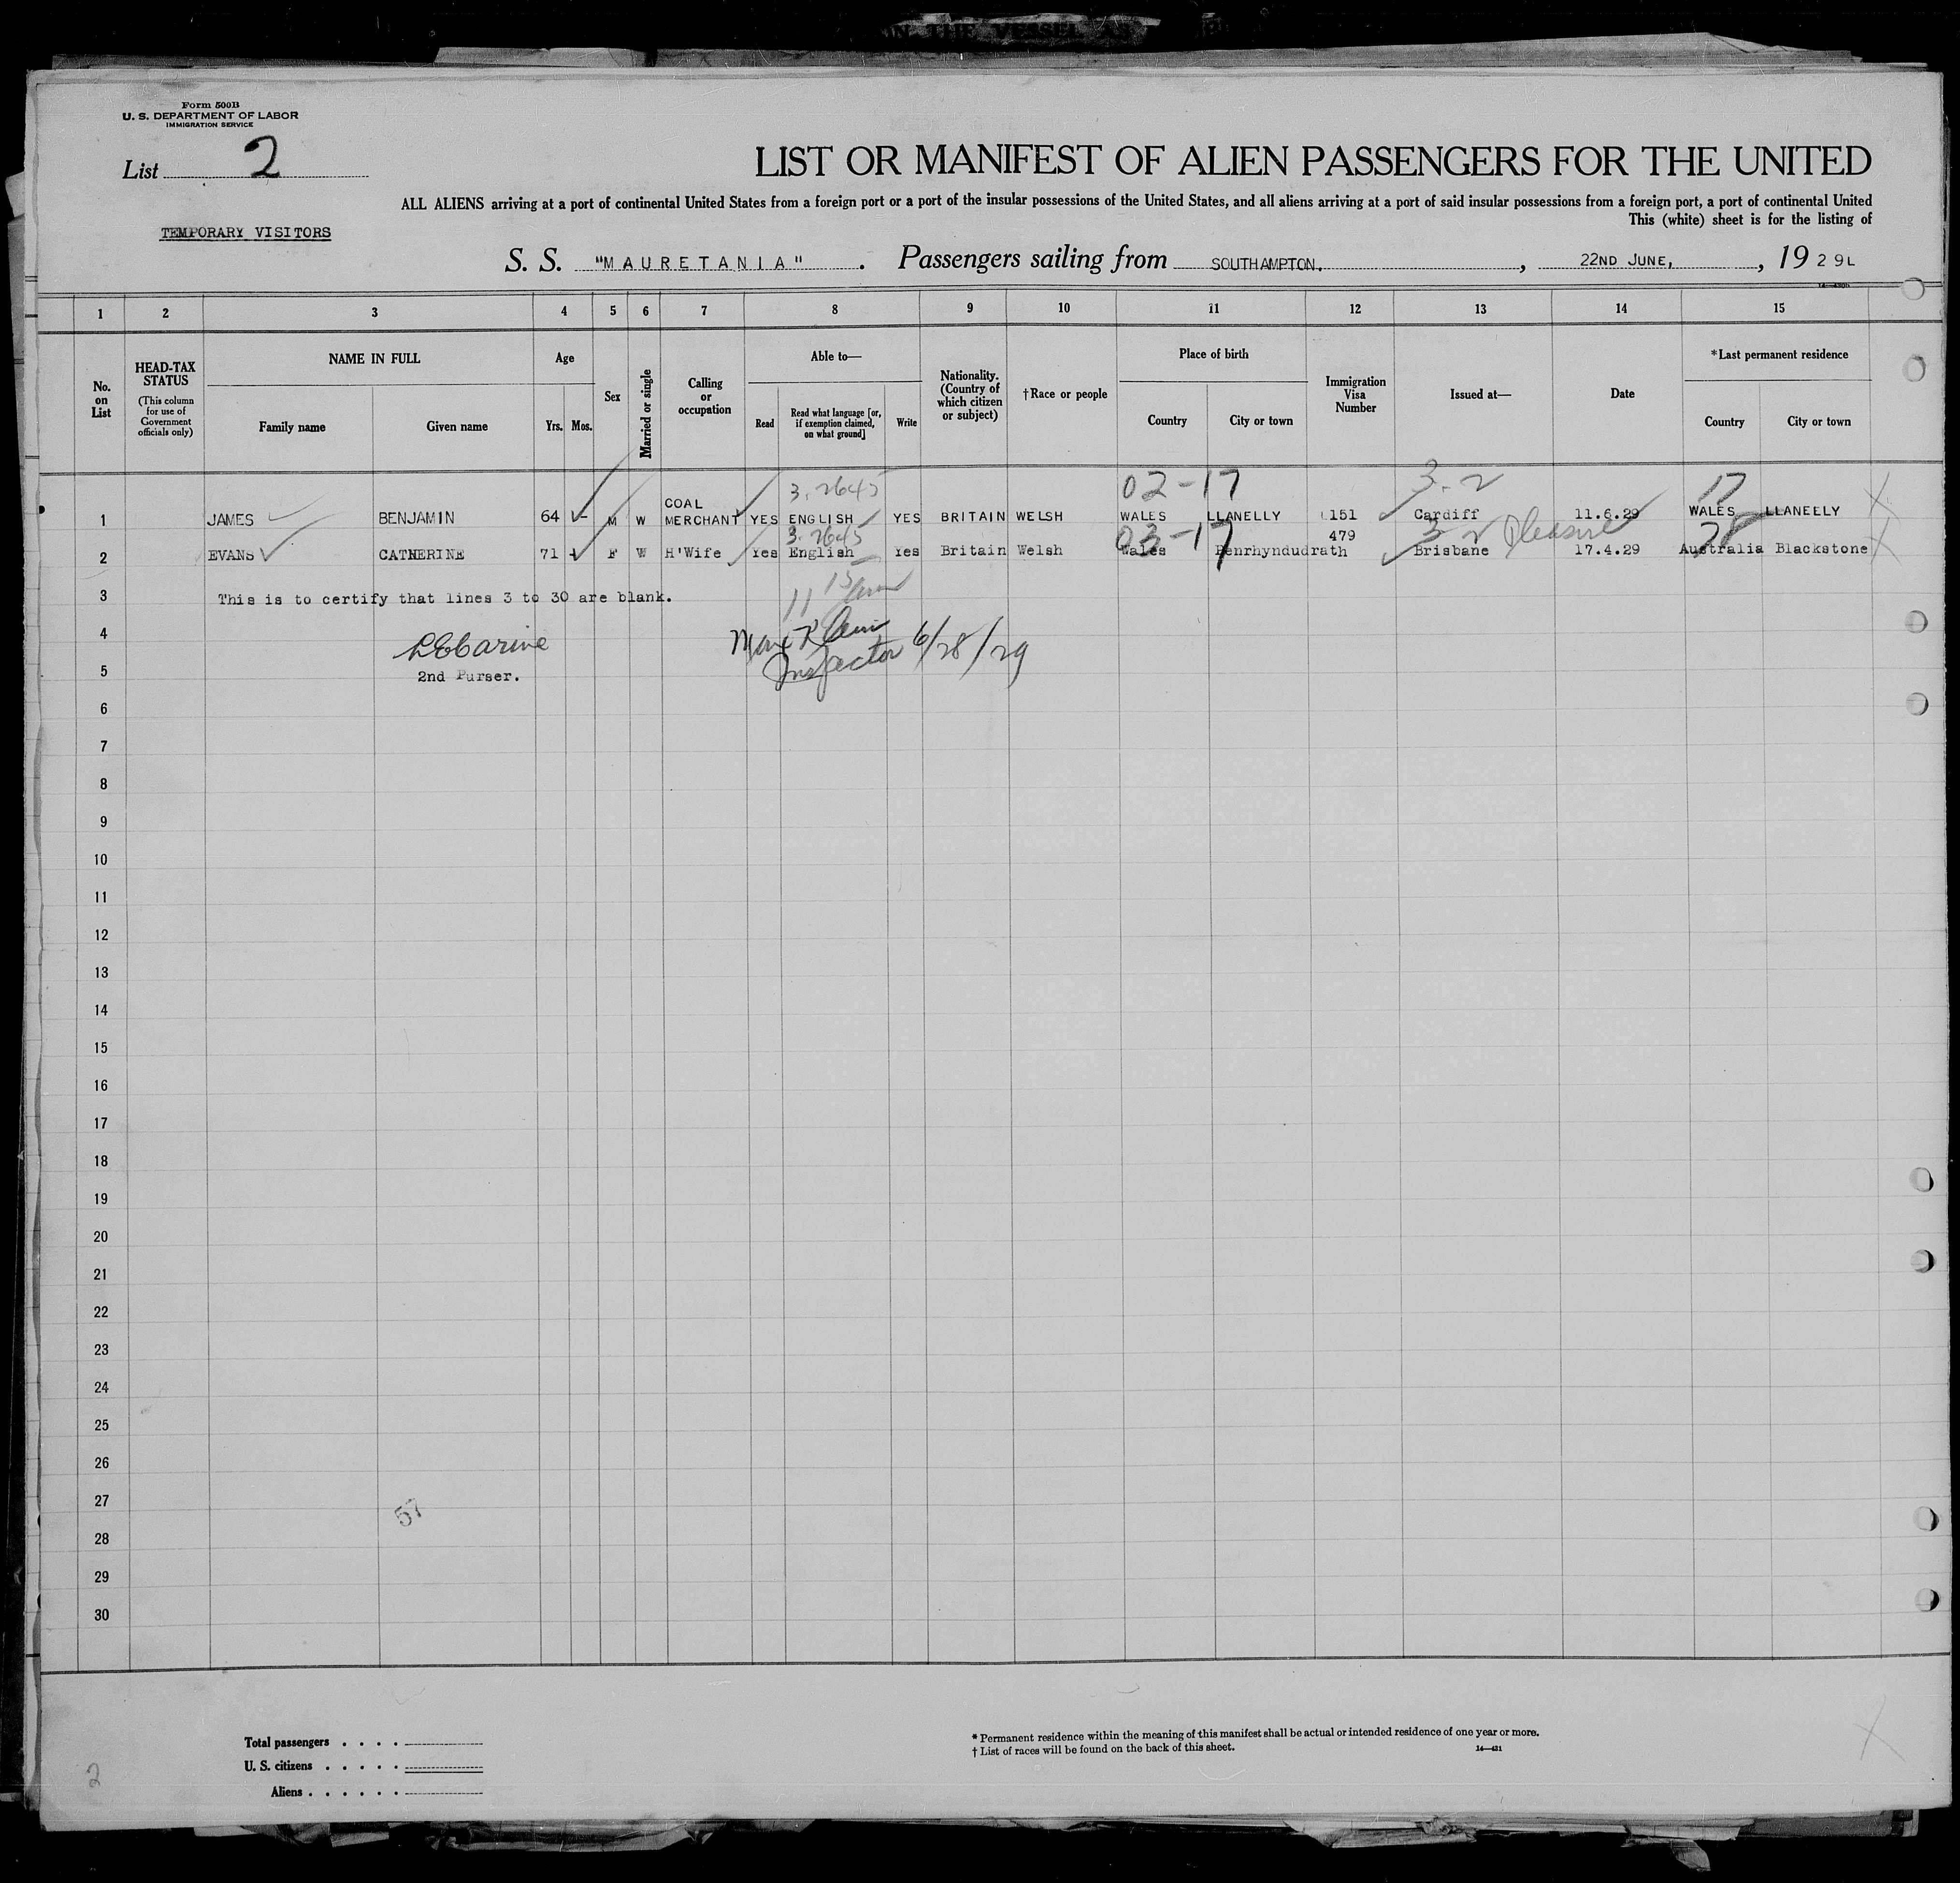 Form 500B
U. S. DEPARTMENT OF LABOR
IMMIGRATION SERVICE
List 2
LIST OR MANIFEST OF ALIEN PASSENGERS FOR THE UNITED
ALL ALIENS arriving at a port of continental United States from a foreign port or a port of the insular possessions of the United States, and all aliens arriving at a port of said insular possessions from a foreign port, a port of continental United
This (white) sheet is for the listing of
TEMPORARY VISITORS
S. S. "MAURETANIA" . Passengers sailing from SOUTHAMPTON. , 22ND JUNE, , 1929L
1 2 3 4 5 6 7 8 9 10 11 12 13 14 15
No. on List
HEAD-TAX STATUS (This column for use of Government officials only)
NAME IN FULL Family name Given name
Age Yrs. Mos.
Sex
Married or single
Calling or occupation
Able to— Read Read what language [or, if exemption claimed, on what ground] Write
Nationality. (Country of which citizen or subject)
†Race or people
Place of birth Country City or town
Immigration Visa Number
Issued at—
Date
*Last permanent residence Country City or town
3.2645 02-17 3-2 17
1 JAMES BENJAMIN 64 - M W COAL MERCHANT YES ENGLISH YES BRITAIN WELSH WALES LLANELLY 151 Cardiff 11.6.29 WALES LLANELLY
3.2645 03-17 3-2 Pleasure 28
2 EVANS CATHERINE 71 F W H'Wife Yes English Yes Britain Welsh Wales Penrhyndudrath 479 Brisbane 17.4.29 Australia Blackstone
3 This is to certify that lines 3 to 30 are blank.
4
Inspector 6/28/29
5 2nd Purser.
6
7
8
9
10
11
12
13
14
15
16
17
18
19
20
21
22
23
24
25
26
27
57
28
29
30
Total passengers . . . .
U. S. citizens . . . . .
Aliens . . . . . .
* Permanent residence within the meaning of this manifest shall be actual or intended residence of one year or more.
† List of races will be found on the back of this sheet.
14—431
2